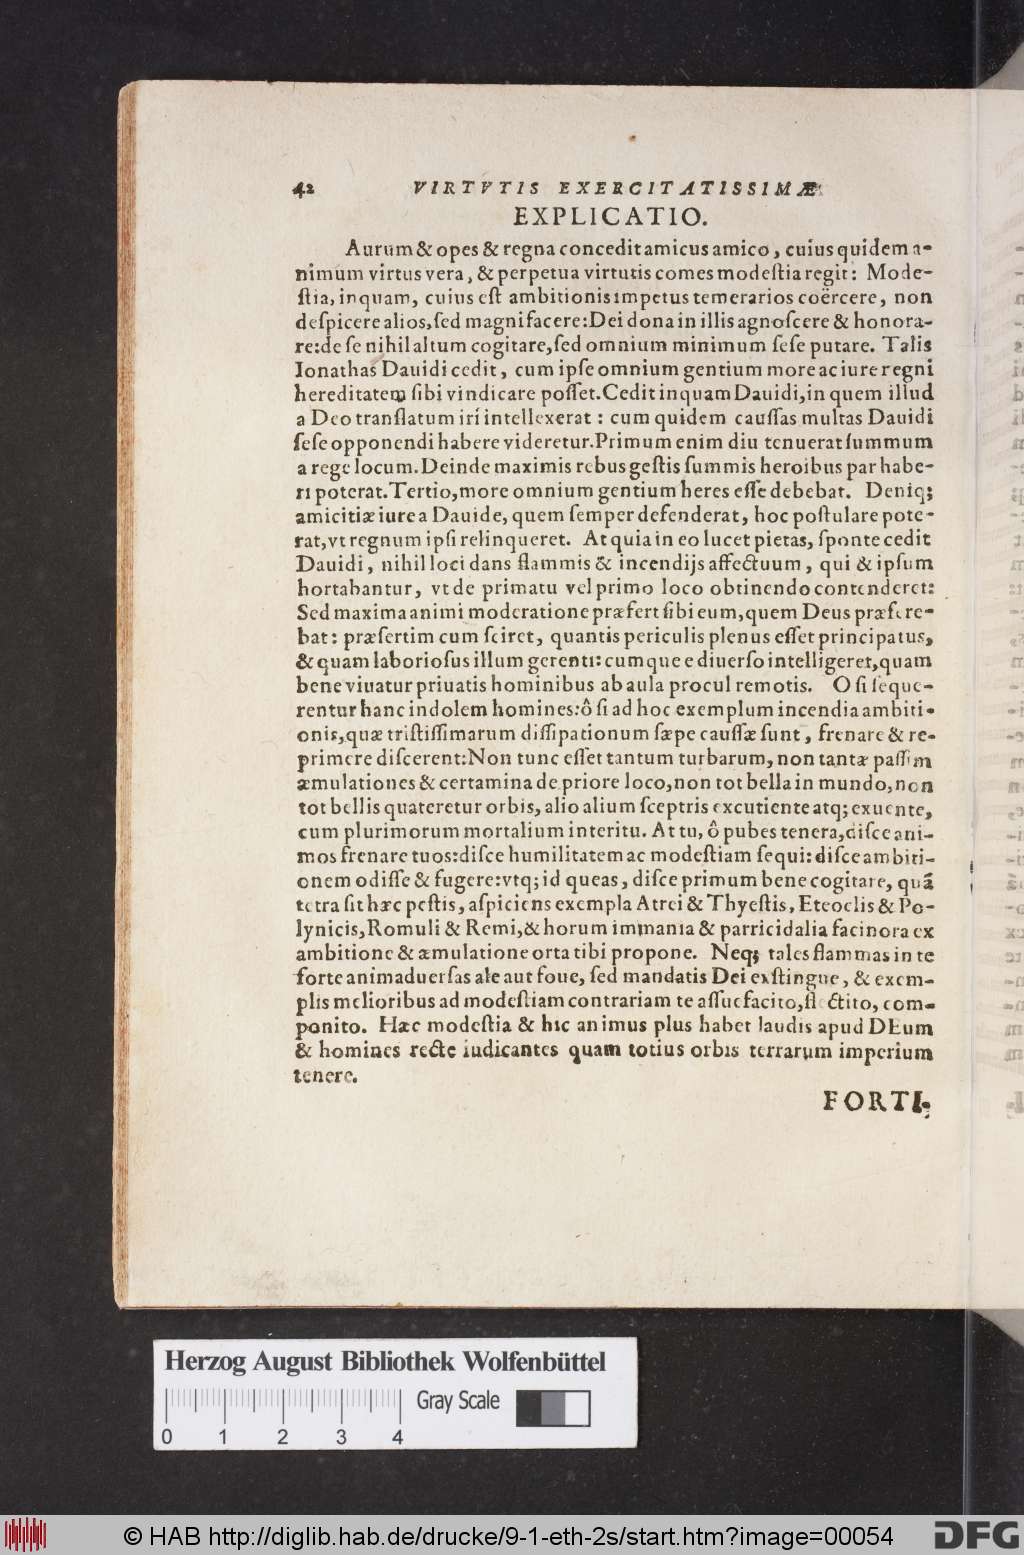 42 VIRTVTIS EXERCITATISSIMÆ
EXPLICATIO.
Aurum & opes & regna concedit amicus amico, cuius quidem a-
nimum virtus vera, & perpetua virtutis comes modeſtia regit: Mode-
ſtia, inquam, cuius eſt ambitionis impetus temerarios coërcere, non
deſpicere alios, ſed magnifacere: Dei dona in illis agnoſcere & honora-
re: de ſe nihil altum cogitare, ſed omnium minimum ſeſe putare. Talis
Ionathas Dauidi cedit, cum ipſe omnium gentium more ac iure regni
hereditatem ſibi vindicare poſſet. Cedit inquam Dauidi, in quem illud
a Deo tranſlatum iri intellexerat: cum quidem cauſſas multas Dauidi
ſeſe opponendi habere videretur. Primum enim diu tenuerat ſummum
a rege locum. Deinde maximis rebus geſtis ſummis heroibus par habe-
ri poterat. Tertio, more omnium gentium heres eſſe debebat. Deniq;
amicitiæ iure a Dauide, quem ſemper defenderat, hoc poſtulare pote-
rat, vt regnum ipſi relinqueret. At quia in eo lucet pietas, ſponte cedit
Dauidi, nihil loci dans flammis & incendijs affectuum, qui & ipſum
hortabantur, vt de primatu vel primo loco obtinendo contenderet:
Sed maxima animi moderatione præfert ſibi eum, quem Deus præfere-
bat: præſertim cum ſciret, quantis periculis plenus eſſet principatus,
& quam laborioſus illum gerenti: cumque e diuerſo intelligeret, quam
bene viuatur priuatis hominibus ab aula procul remotis. O ſi ſeque-
rentur hanc indolem homines: ô ſi ad hoc exemplum incendia ambiti-
onis, quæ triſtiſſimarum diſſipationum ſæpe cauſſæ ſunt, frenare & re-
primere diſcerent: Non tunc eſſet tantum turbarum, non tantæ paſſim
æmulationes & certamina de priore loco, non tot bella in mundo, non
tot bellis quateretur orbis, alio alium ſceptris excutiente atq; exuente,
cum plurimorum mortalium interitu. At tu, ô pubes tenera, diſce ani-
mos frenare tuos: diſce humilitatem ac modeſtiam ſequi: diſce ambiti-
onem odiſſe & fugere: vtq; id queas, diſce primum bene cogitare, quā
tetra ſit hæc peſtis, aſpiciens exempla Atrei & Thyeſtis, Eteoclis & Po-
lynicis, Romuli & Remi, & horum immania & parricidalia facinora ex
ambitione & æmulatione orta tibi propone. Neq; tales flammas in te
forte animaduerſas ale aut foue, ſed mandatis Dei exſtingue, & exem-
plis melioribus ad modeſtiam contrariam te aſſuefacito, flectito, com-
ponito. Hæc modeſtia & hic animus plus habet laudis apud DEum
& homines recte iudicantes quam totius orbis terrarum imperium
tenere.
FORTI-
Herzog August Bibliothek Wolfenbüttel
Gray Scale
0 1 2 3 4
© HAB http://diglib.hab.de/drucke/9-1-eth-2s/start.htm?image=00054
DFG